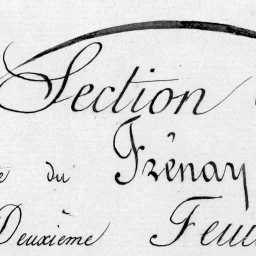 Section
e du Frênay
Deuxième Feui